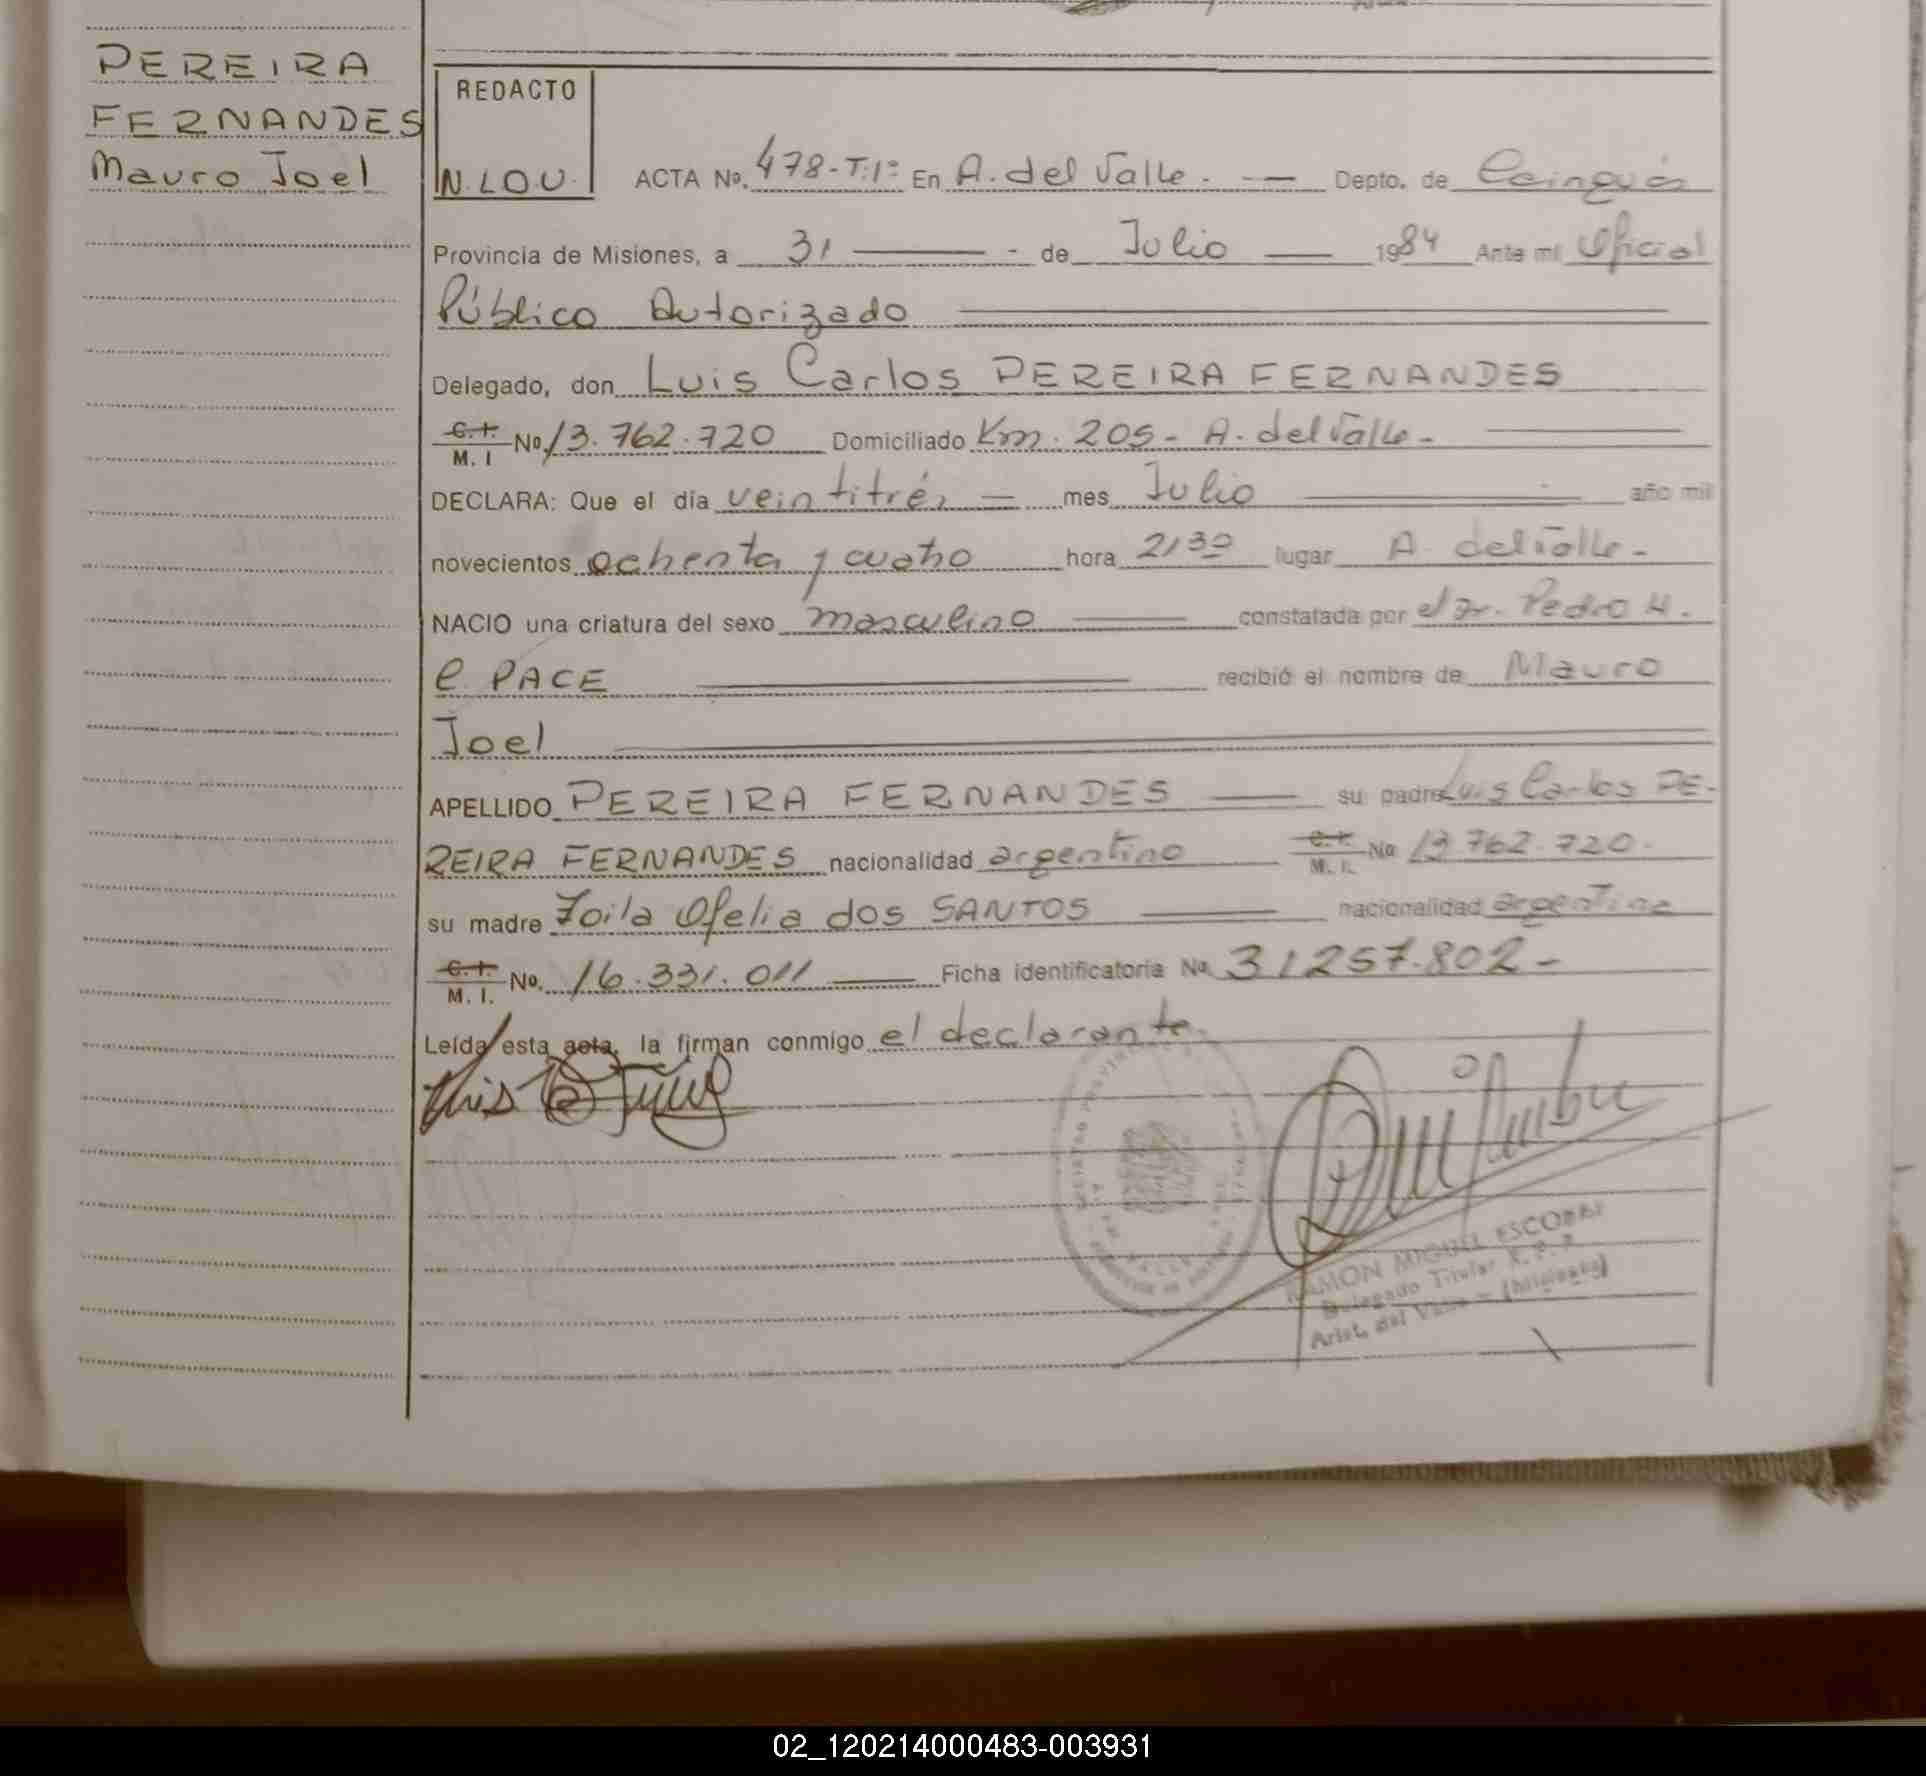 PEREIRA
FERNANDES
Mauro Joel
REDACTO
N.LOU.
ACTA No. 478-T:1º En A. del Valle. - — Depto. de Cainguás
Provincia de Misiones, a 31 — - de Julio — 1984 Ante mi Oficial
Público Autorizado
Delegado, don Luis Carlos PEREIRA FERNANDES
C.I. M. I No. 13.762.720 Domiciliado Km. 205- A. del Valle -
DECLARA: Que el día veintitrés — mes Julio — año mil
novecientos ochenta y cuatro hora 21 30 lugar A. del Valle -
NACIO una criatura del sexo masculino — constatada por el Dr. Pedro H.
C. PACE — recibió el nombre de Mauro
Joel
APELLIDO PEREIRA FERNANDES — su padre Luis Carlos PE-
REIRA FERNANDES nacionalidad argentino C.I. M. I. No 13.762.720.
su madre Zoila Ofelia dos SANTOS — nacionalidad argentina
C.I. M. I. No. 16.331.011 — Ficha identificatoria No 31257.802 -
Leída esta acta, la firman conmigo el declarante.
RAMON MIGUEL ESCOBAR
Delegado Titular R.P.P.
Arist. del Valle - (Misiones)
02_120214000483-003931